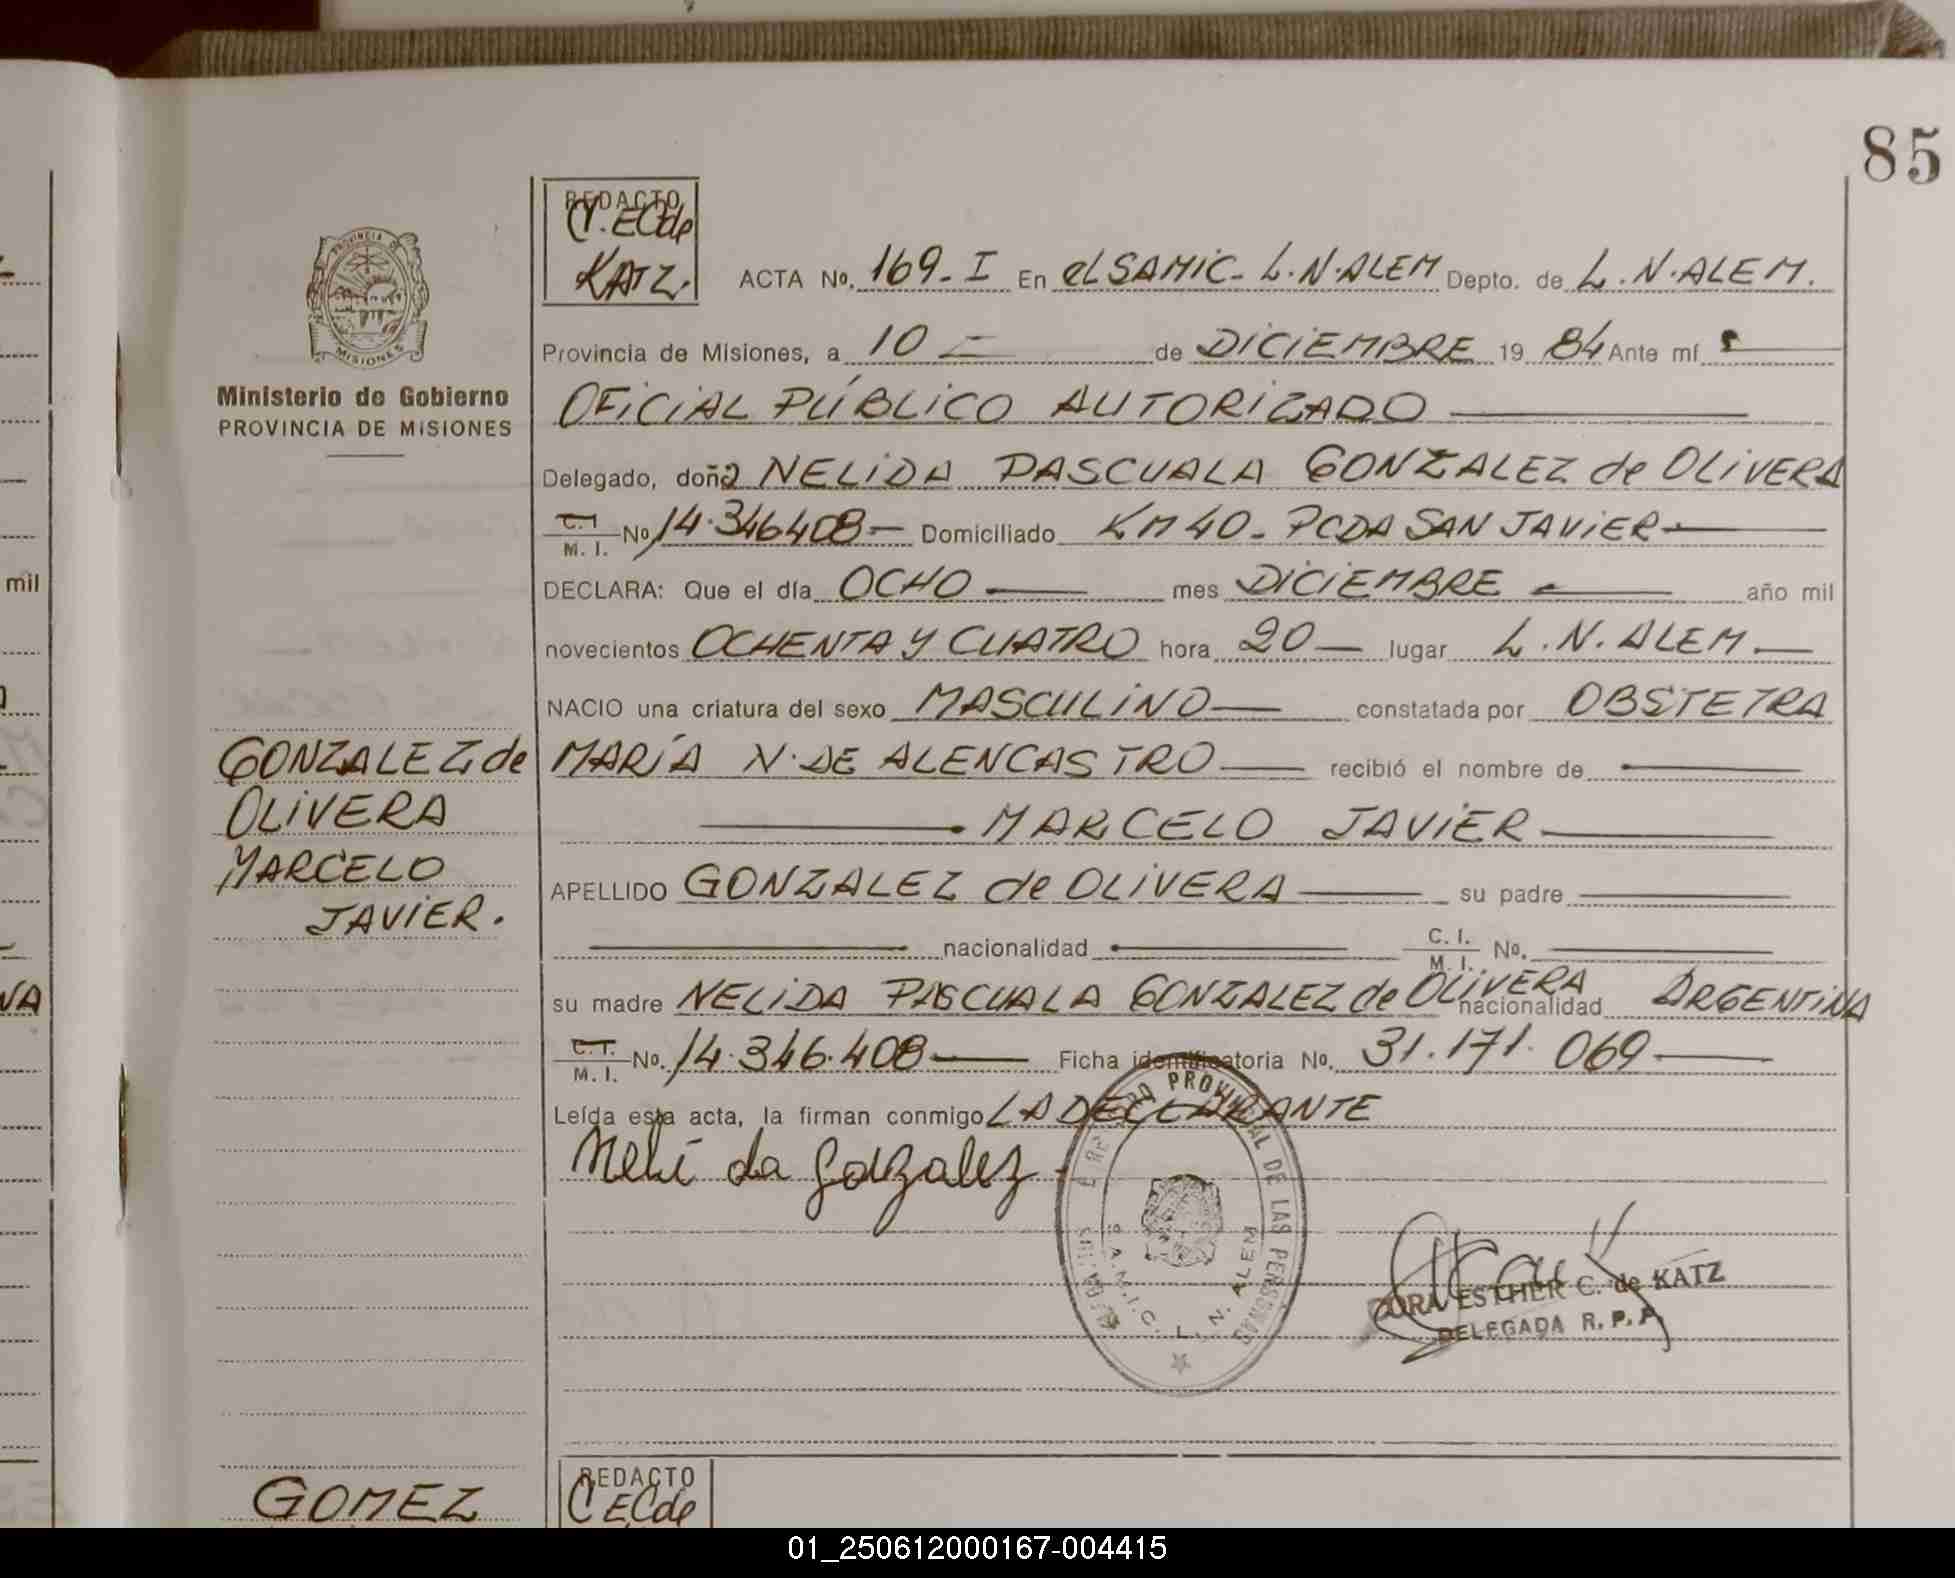 85
REDACTO
C. EC de
KATZ.
PROVINCIA DE
MISIONES
Ministerio de Gobierno
PROVINCIA DE MISIONES
ACTA No. 169-I En el SAMIC- L.N.ALEM Depto. de L.N.ALEM.
Provincia de Misiones, a 10 — de DICIEMBRE 19 84 Ante mí —
OFICIAL PÚBLICO AUTORIZADO —
Delegado, doña NELIDA PASCUALA GONZALEZ de OLIVERA
C.I. M. I. No 14.346408— Domiciliado KM 40- PCDA SAN JAVIER—
DECLARA: Que el día OCHO — mes DICIEMBRE — año mil
novecientos OCHENTA Y CUATRO hora 20 — lugar L.N. ALEM —
NACIO una criatura del sexo MASCULINO — constatada por OBSTETRA
MARÍA N. DE ALENCASTRO — recibió el nombre de —
— MARCELO JAVIER —
APELLIDO GONZALEZ de OLIVERA — su padre —
— nacionalidad — C. I. M. I. No. —
su madre NELIDA PASCUALA GONZALEZ de OLIVERA nacionalidad ARGENTINA
C.I. M. I. No. 14.346.408 — Ficha identificatoria No. 31.171.069 —
Leída esta acta, la firman conmigo LA DECLARANTE
Neli da Gonzalez
GONZALEZ de
OLIVERA
MARCELO
JAVIER.
PROVINCIAL DE LAS PERSONAS
S.A.M.I.C. L. N. ALEM
ESTHER C. de KATZ
DELEGADA R. P. P.
GOMEZ
REDACTO
C EC de
mil
NA
01_250612000167-004415